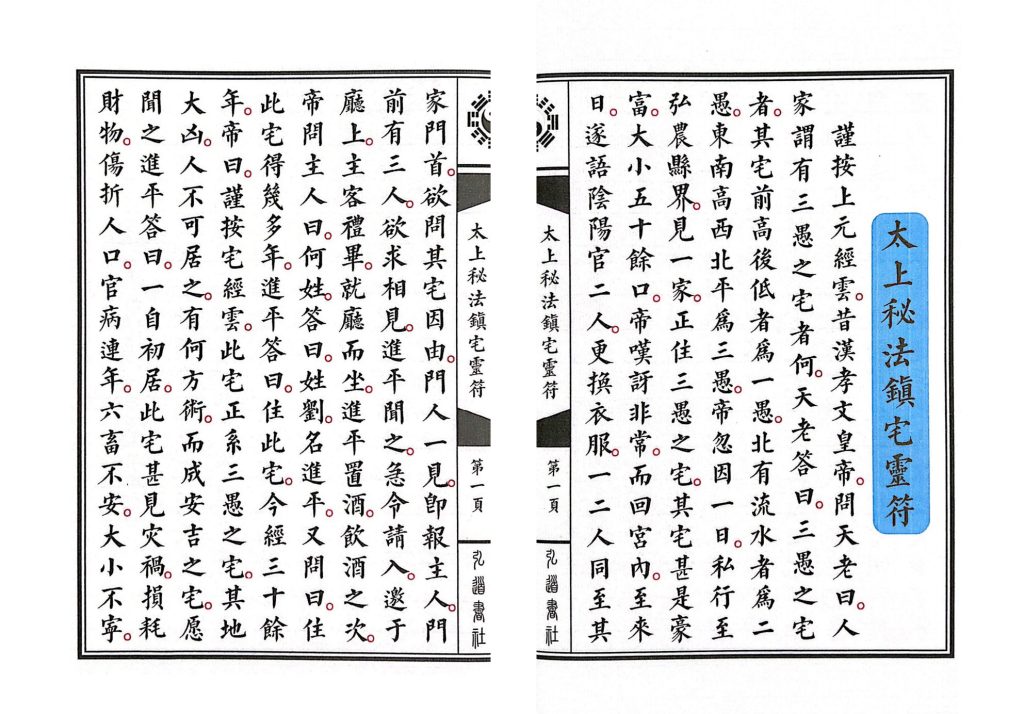 太上秘法鎮宅靈符
謹按上元經雲。昔漢孝文皇帝。問天老曰。人
家謂有三愚之宅者何。天老答曰。三愚之宅
者。其宅前高後低者爲一愚。北有流水者爲二
愚。東南高西北平爲三愚。帝忽因一日。私行至
弘農縣界。見一家。正住三愚之宅。其宅甚是豪
富。大小五十餘口。帝嘆訝非常。而回宮內。至來
日。遂語陰陽官二人。更換衣服。一二人同至其
太上秘法鎮宅靈符
第一頁
弘道書社
太上秘法鎮宅靈符
第一頁
弘道書社
家門首。欲問其宅因由。門人一見。卽報主人。門
前有三人。欲求相見。進平聞之。急令請入。邀于
廳上。主客禮畢。就廳而坐。進平置酒。飲酒之次。
帝問主人曰。何姓。答曰。姓劉。名進平。又問曰。住
此宅得幾多年。進平答曰。住此宅。今經三十餘
年。帝曰。謹按宅經雲。此宅正系三愚之宅。其地
大凶。人不可居之。有何方術。而成安吉之宅。愿
聞之進平答曰。一自初居。此宅甚見灾禍。損耗
財物。傷折人口。官病連年。六畜不安。大小不寧。